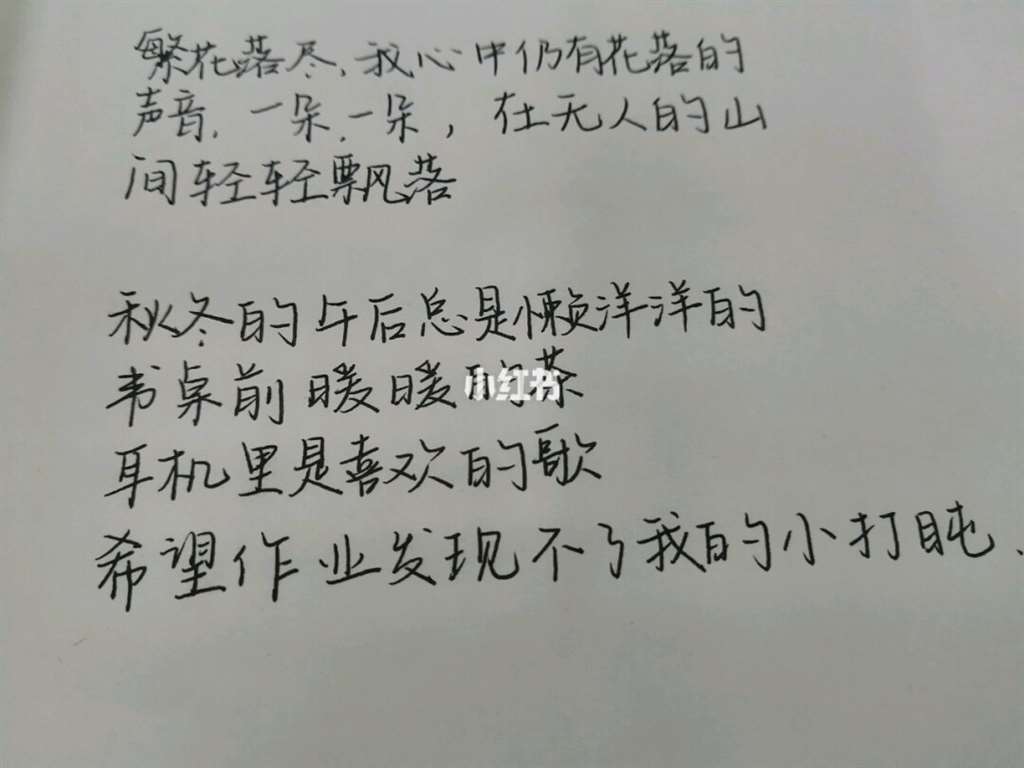 繁花落尽，我心中仍有花落的
声音，一朵，一朵，在无人的山
间轻轻飘落
秋冬的午后总是懒洋洋的
书桌前暖暖的茶
小红书
耳机里是喜欢的歌
希望作业发现不了我的小打盹.